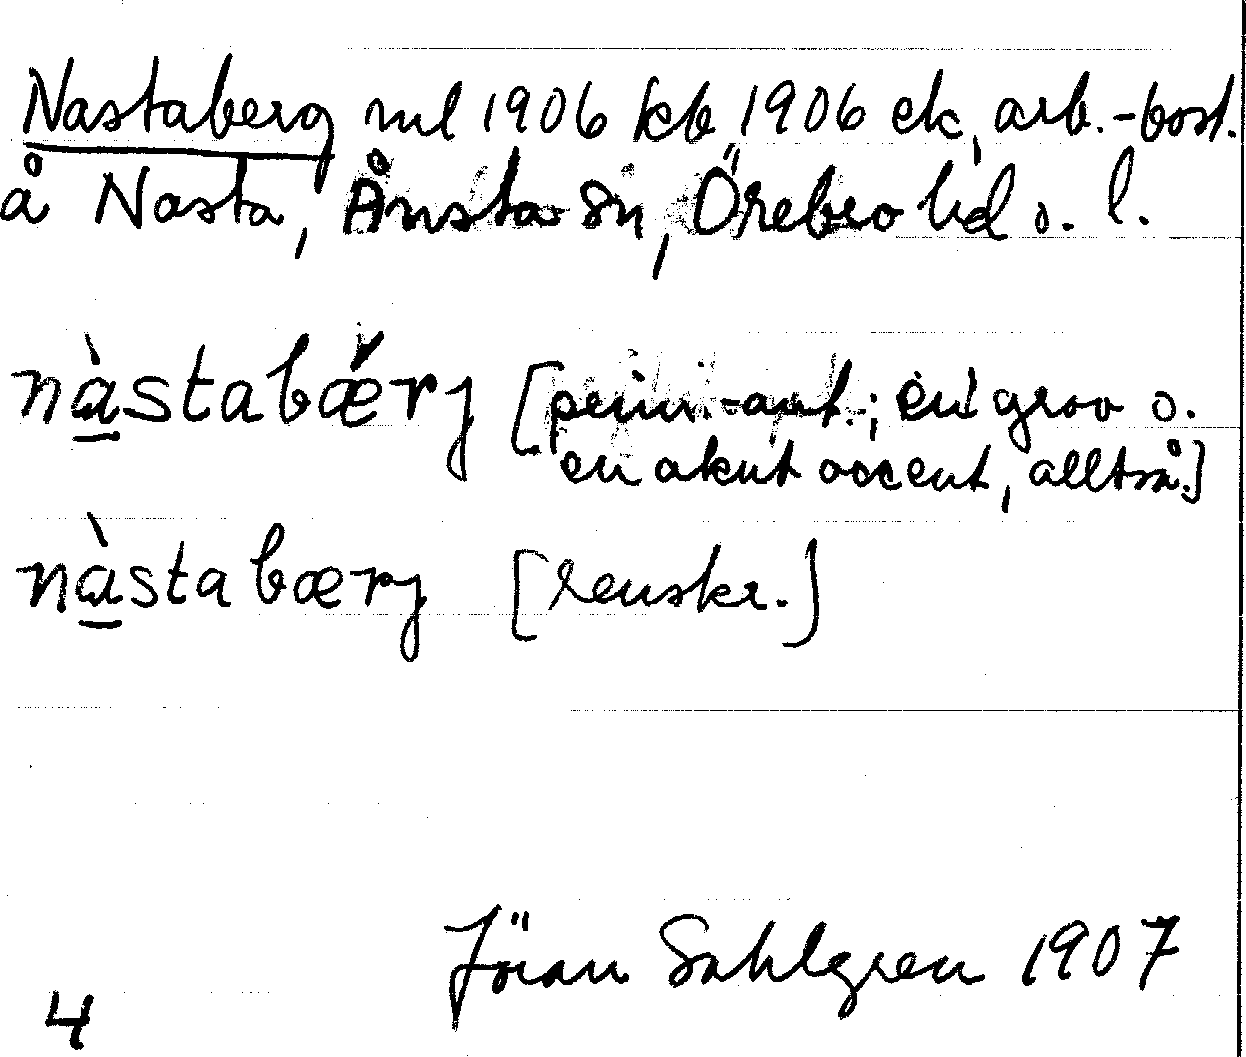 Nastaberg ml 1906 kb, 1906 ek, arb.-bost.
å Nasta, Ånsta sn, Örebro hd o. l.
nàstabǽrj [prim.-ant.; en grav o.
en akut accent, alltså.]
nàstabærj [renskr.]
Jöran Sahlgren 1907
4